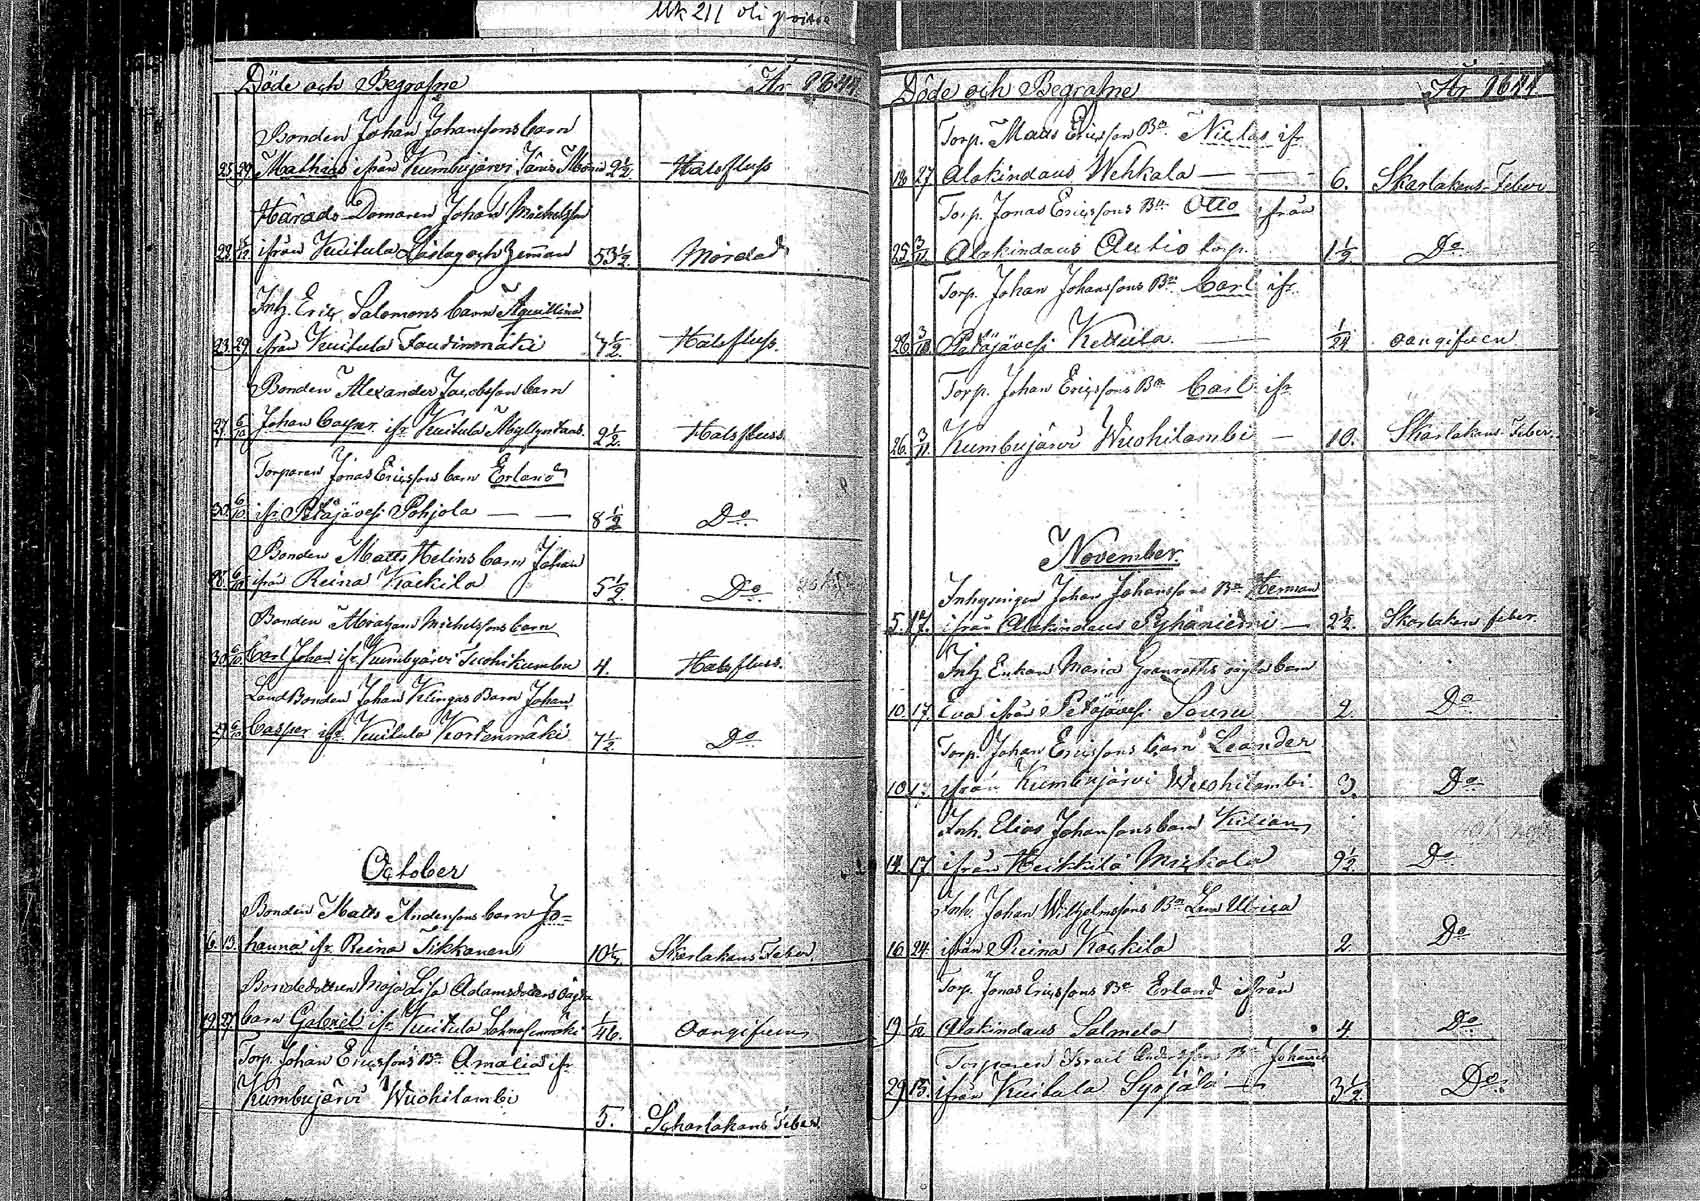 Mk 211 oli poissa
Döde och Begrafne År 1844.
Bonden Johan Johanssons barn
25 29 Mathias ifrån Kumbujärvi 2½. Halsfluss
Härads Domaren Johan Michelsson
ifrån Kuitula Lästag och Zeman 53½ Mördad
Inh. Eric Salomons barn Aquilina
23 29 ifrån Kuitula 7½. Halsfluss.
Bonden Alexander Jacobsson barn
27. 6/10 Johan Casper ifr Kuitula Myllyntaus. 2½. Halsfluss.
Torparen Jonas Ericssons barn Erland
30. 6/10 ifr Petäjävesi Pohjola — — 8½ Do
Bonden Matts Helins barn Johan
28. 6/10 ifrån Reina Kaekila 5½. Do
Bonden Abraham Michelssons barn
30 6/10 Carl Johan ifr Kumbujärvi Tuohikumbu 4. Halsfluss.
LandBonden Johan Klingas Barn Johan
29 6/10 Casper ifr Kuitula Kortenmäki 7½. Do
October
Bonden Matts Andersons barn Jo=
6. 13. hanna ifr Reina Tikkanen 10½ Skarlakans Feber.
Bondedottren Maja Lisa Adamsdotters oägta
19. 27 barn Gabriel ifr Kuitula 1/46. Oangifven
Torp. Johan Ericssons Bn Amalia ifr
Kumbujärvi Wuohilambi
5. Scharlakans Feber
Döde och Begrafne År 1844
Torp. Matts Ericsson Bn. Niclas ifr
18 27 Alakindaus Wehkala — 6. Skarlakans Feber
Torp. Jonas Ericssons Bn Otto ifrån
25 3/11 Alakindaus Autio torp. 1½ Do
Torp. Johan Johanssons Bn Carl ifr.
28. 3/11 Petäjävesi Kettula — 1/24. oangifven
Torp. Johan Ericssons Bn Carl ifr
26. 3/11. Kumbujärvi Wuohilambi — 10. Skarlakans Feber.
November.
Inhysingen Johan Johanssons Bn Herman
5. 17. ifrån Alakindaus Pyhäniemi — 2½. Skarlakans feber
Inh Enkan Maria Granroths oägta barn
10. 17. Eva ifrån Petäjävesi Souru 2. Do
Torp. Johan Ericssons barn Leander
10 17. ifrån Kumbujärvi Wuohilambi. 3. Do
Inh. Elias Johanssons barn Kilian
14. 17 ifrån Heikkilä Mickola 9½. Do
Inh. Johan Wilhelmssons Bn Lena Ulrica
16 24. ifrån Reina Kaekila 2 Do
Torp. Jonas Ericssons Bn Erland ifrån
19 1/12 Alakindaus Salmela 4. Do
Torparen Israel Andersson Bn Johannes
29 15. ifrån Kuitula Syrjälä — 3½. Do.